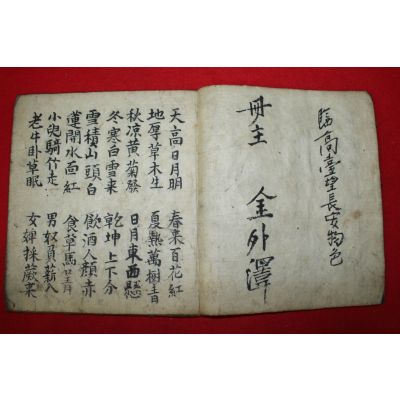 臨高臺望長安物色
冊主 金外澤
天高日月明 春來百花紅
地厚草木生 夏熱萬樹青
秋凉黃菊發 日月東西懸
冬寒白雪來 乾坤上下分
雪積山頭白 飲酒人顔赤
蓮開水面紅 食草馬口青
小兒騎竹走 男奴負薪入
老牛臥草眠 女婢採蕨來